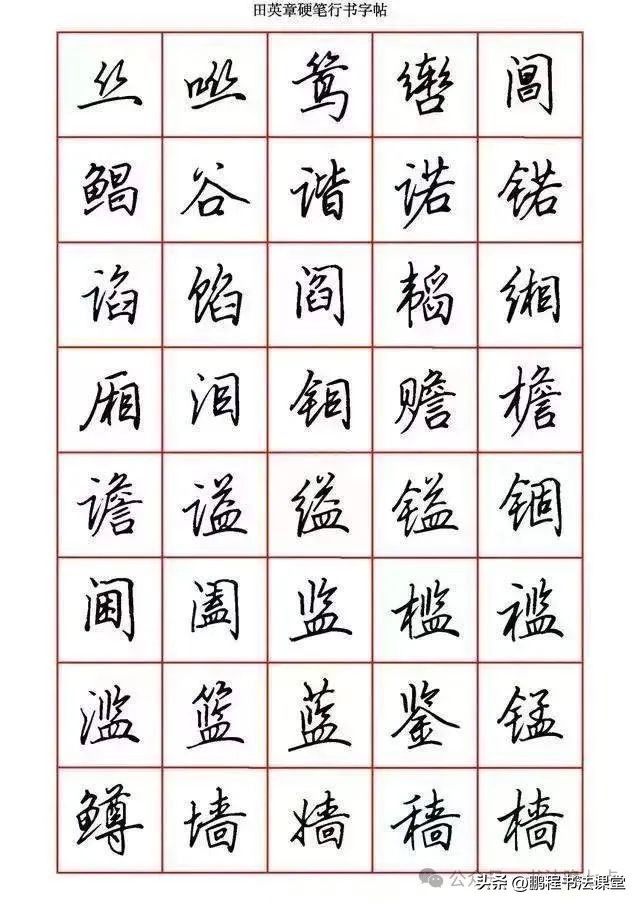 田英章硬笔行书字帖
丝 咝 鸶 阊
鲳 谷 谐 诺 锘
谄 馅 阎 韬 缃
厢 泪 钼 赡 檐
谵 谥 缢 镒 锢
阃 阖 监 槛 褴
滥 篮 蓝 鉴 锰
鳟 墙 嫱 穑 樯
公众号
头条 @鹏程书法课堂